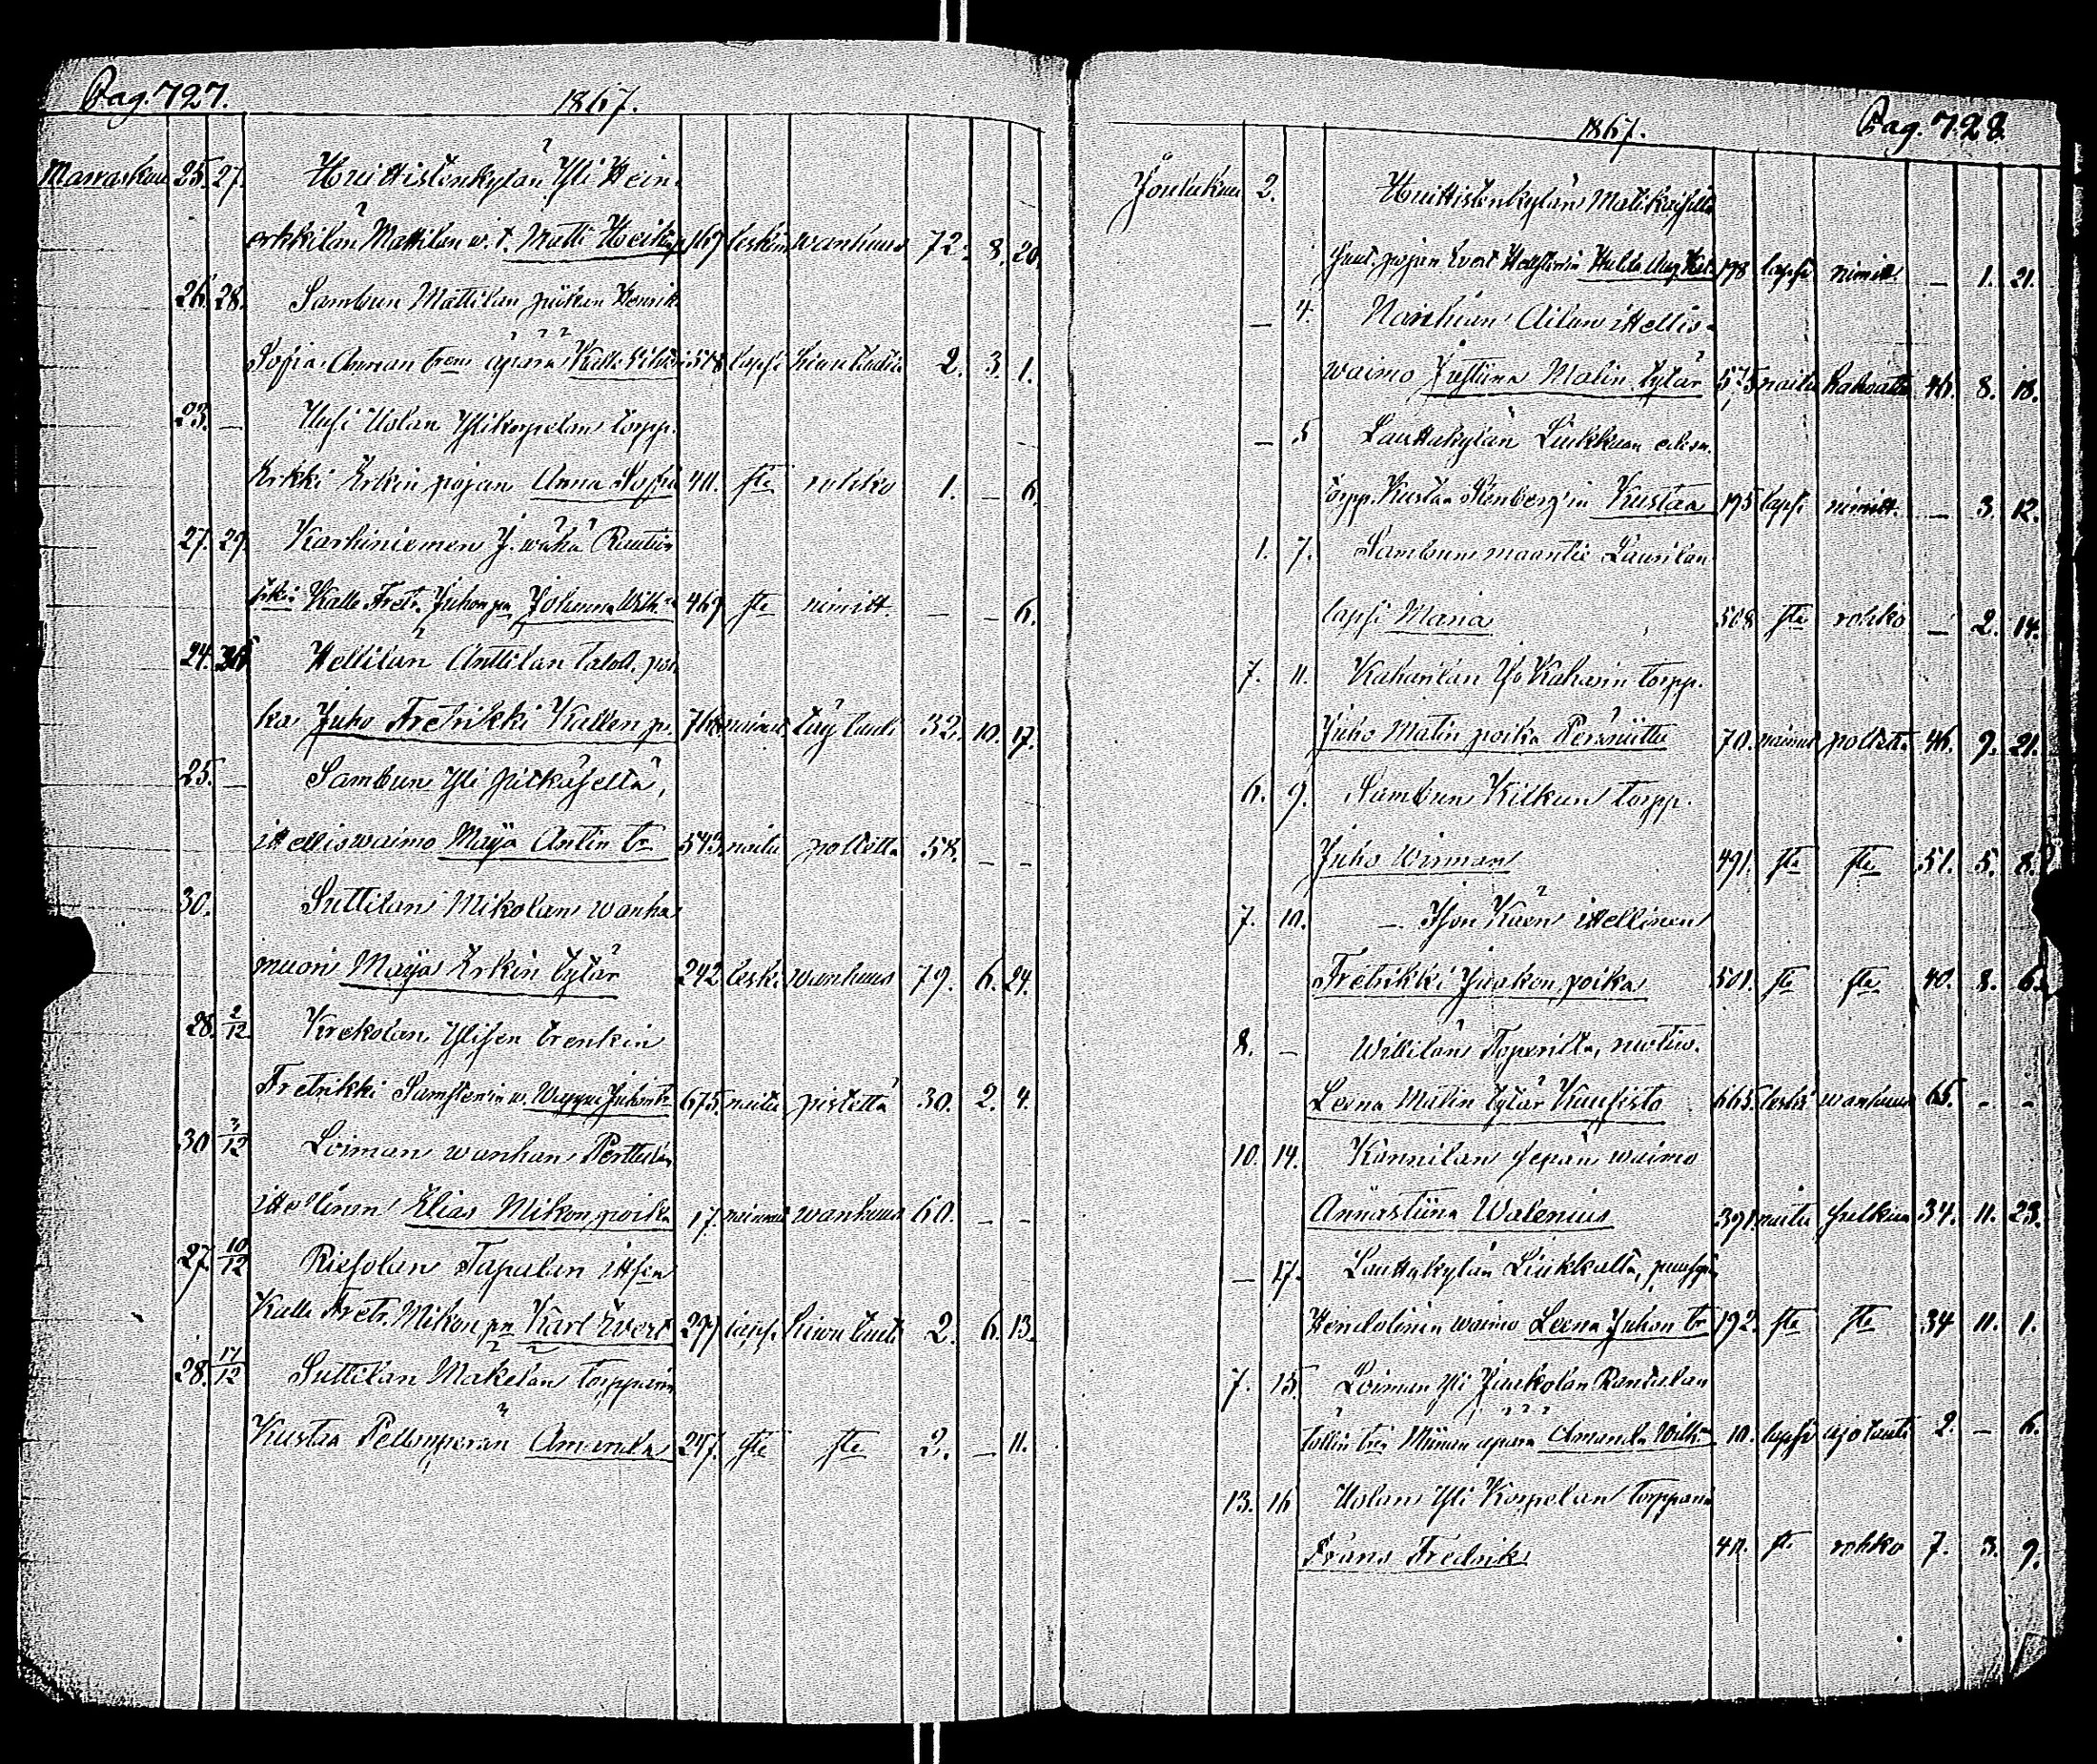 Pag. 727.
1867.
Marraskuu 25. 27. Huittistenkylän Yli Hein-
erkkilän Mattilan w. t. Matti Heikinp. 167 leskim. wanhuus 72. 8. 20.
26. 28. Sambun Mattilan piikan Henrik
Sofia Annan tren äpärä Kalle 518 lapsi hinku tauti 2. 3. 1.
23. — Uusi Uolan Ylikorpelan torpp.
Erkki Erkin pojan Anna Sofia 40. ste rohko 1. — 6.
27. 29. Karhiniemen J. wähä Rauti
Kalle Fretr. Juhon pn Johanna Wilh. 469 ste nimitt. — — 6.
24. Hellilän Anttilan taloll. poi-
ka Juho Fretrikki Kallen p. nainut 32. 10. 17.
25. — Sambun Yli pitkäseltä,
ittelliswaimo Maija Antin tr 543. naitu poltetta 58. — —
30. Suttilan Mikolan wanha
muori Maija Erkin tytär 242 leski wanhuus 79. 6. 24.
28. 2/12 Krekolan Ylisen trenkin
Fretrikki w. Juhontr. 675. naitu pistettä 30. 2. 4.
30 3/12 Loiman wanhan Perttulan
ittellinen Elias Mikon poika 17. nainut wanhuus 60. — —
27. 10/12 Riesolan Tapalan ittsen
Kalle Fretr. Mikon pn Karl Evert 297 laps. hinku tauti 2. 6. 13.
28. 17/12 Suttilan Mäkelän torpparin
Kustaa Pellonperän Amanda 247. ste ste 2. — 11.
1867.
Pag. 728.
Joulukuu 2. Huittistenkylän Matikaiselta
pojan Evert Hellstenin Hulda Aug. 198 lapsi nimitt. — 1. 21.
— 4. Naishian Ailan ittellis-
waimo Justiina Matin tytär 575 naitu 46. 8. 18.
— 5 Lauttakylän Liukkuan
torpp. Kustaa Stenberg'in Kustaa 195 lapsi nimitt. — 3. 12.
1. 7. Sambun maantie Laurilan
lapsi Maria 508 ste rohko — 2. 14.
7. 11. Kaharilan Yö Kaharin torpp.
Juho Matin poika Peräniittu 70. nainut poltetta 46. 9. 21.
6. 9. Sambun Kilkun torpp.
Juho Wirman 491. ste ste 51. 5. 8.
7. 10. — Ison Käen ittellinen
Fretrikki Jaakon poika 501. ste ste 40. 8. 6.
8. — Willilän Toperilta,
Leena Matin tytär Kuusisto 665. leski wanhuus 65. — —
10. 14. Kännilän sepän waimo
Annastiina Walenius 391. naitu halkua 34. 11. 23.
— 17. Lauttakylän Liukkalta,
Hendelinin waimo Leena Juhon tr 192. ste ste 34 11. 1.
7. 15. Loiman Yli Jaakolan Rantalan
Miinan äpärä Amanda Wilh. 10. lapsi ajotauti 2. — 6.
13. 16 Uolan Yli Korpelan torpparin
Frans Fredrik 40. ste rohko 7. 3. 9.